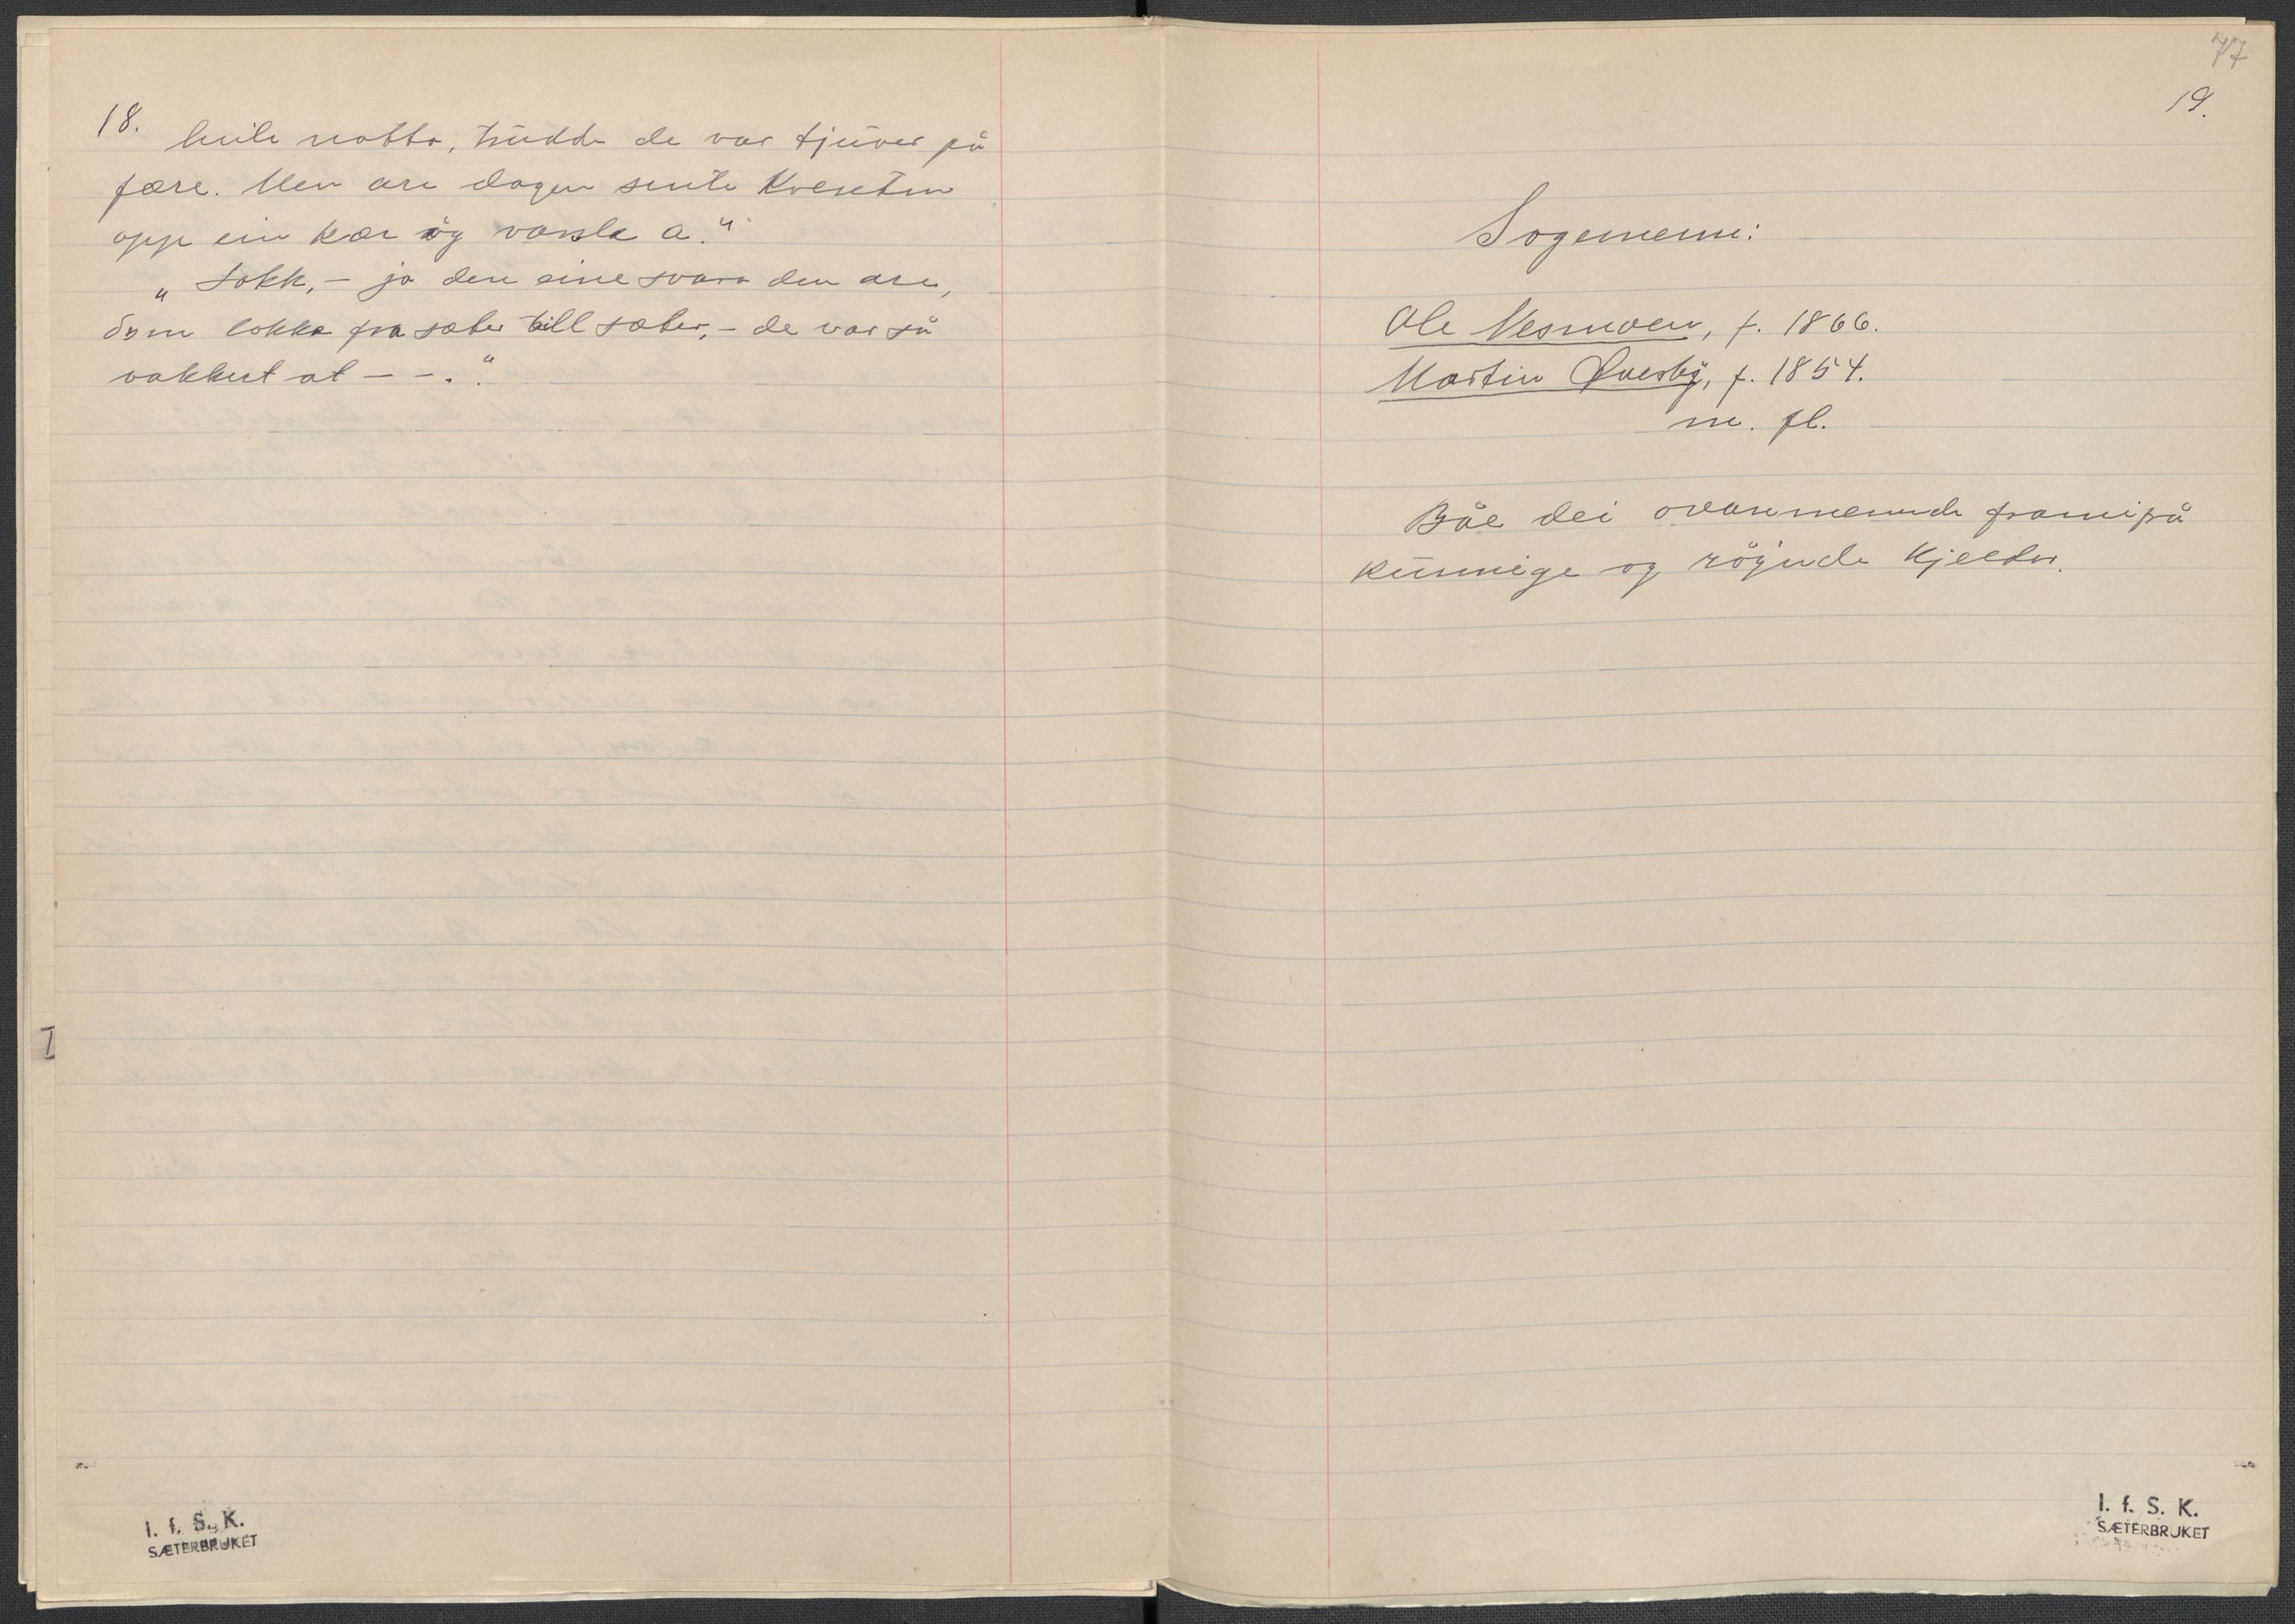 18.
heile notta, trudde de var tjuver på
fære. Men are dagen sente Kvesetun
opp ein kar og varsla a."
„ Lokk, – ja den eine svara den are,
som lokka fra sæter till sæter, – de var så
vakkert at – – ."
I
I. f. S. K.
SÆTERBRUKET
77
19.
Sogemenn:
Ole Nesmoen, f. 1866.
Martin Øverby, f. 1854.
m. fl.
Båe dei ovannemnde framipå
kunnige og røynde kjelder.
I. f. S. K.
SÆTERBRUKET